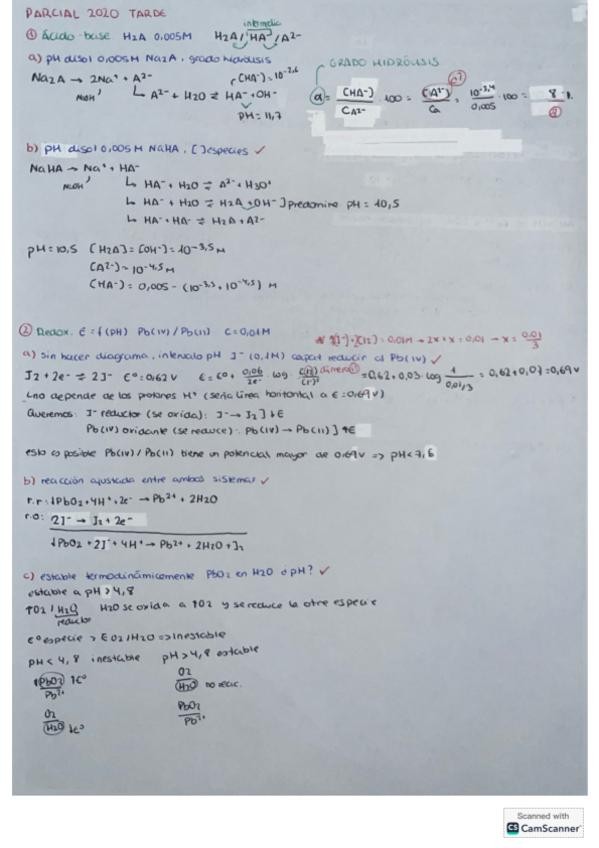 PARCIAL 2020 TARDE
intermedia
① Ácido-base H2A 0,005M H2A/HA-/A2-
a) pH disol 0,005M Na2A, grado hidrólisis
GRADO HIDRÓLISIS
Na2A → 2Na+ + A2-
(HA-) = 10-2,6
↳ A2- + H2O ⇌ HA- + OH-
pH = 11,7
α = (HA-)/CA2- · 100 = (A2-)/Ca = 10-3,4/0,005 · 100 = 8 %
b) pH disol 0,005M NaHA, [ ] especies ✓
NaHA → Na+ + HA-
↳ HA- + H2O ⇌ A2- + H3O+
↳ HA- + H2O ⇌ H2A + OH- ] predomina pH = 10,5
↳ HA- + HA- ⇌ H2A + A2-
pH = 10,5 [H2A] = [OH-] = 10-3,5 M
[A2-] = 10-4,5 M
[HA-] = 0,005 - (10-3,5 + 10-4,5) M
② Redox. E = f(pH) Pb(IV)/Pb(II) C = 0,01M
= 0,01M → 2x + x = 0,01 → x = 0,01/3
a) sin hacer diagrama, intervalo pH I- (0,1M) capaz reducir al Pb(IV) ✓
I2 + 2e- ⇌ 2I- E° = 0,62 V E = E° + 0,06/2e- · log = 0,62 + 0,03 · log 1/0,01/3 = 0,62 + 0,07 = 0,69 V
↳ no depende de los protones H+ (sería línea horizontal a E = 0,69 V)
Queremos: I- reductor (se oxida): I- → I2 ] ↓E
Pb(IV) oxidante (se reduce): Pb(IV) → Pb(II) ] ↑E
esto es posible Pb(IV)/Pb(II) tiene un potencial mayor de 0,69V => pH < 7,6
b) reacción ajustada entre ambos sistemas ✓
r.r: 1PbO2 + 4H+ + 2e- → Pb2+ + 2H2O
r.o: 2I- → I2 + 2e-
1PbO2 + 2I- + 4H+ → Pb2+ + 2H2O + I2
c) estable termodinámicamente PbO2 en H2O a pH? ✓
estable a pH > 4,8
↑O2/H2O H2O se oxida a ↑O2 y se reduce la otra especie
reductor
E° especie > E O2/H2O => inestable
pH < 4,8 inestable pH > 4,8 estable
PbO2 ↑E° O2
Pb2+ H2O no reac.
O2 PbO2
H2O ↓E° Pb2+
Scanned with
CS CamScanner